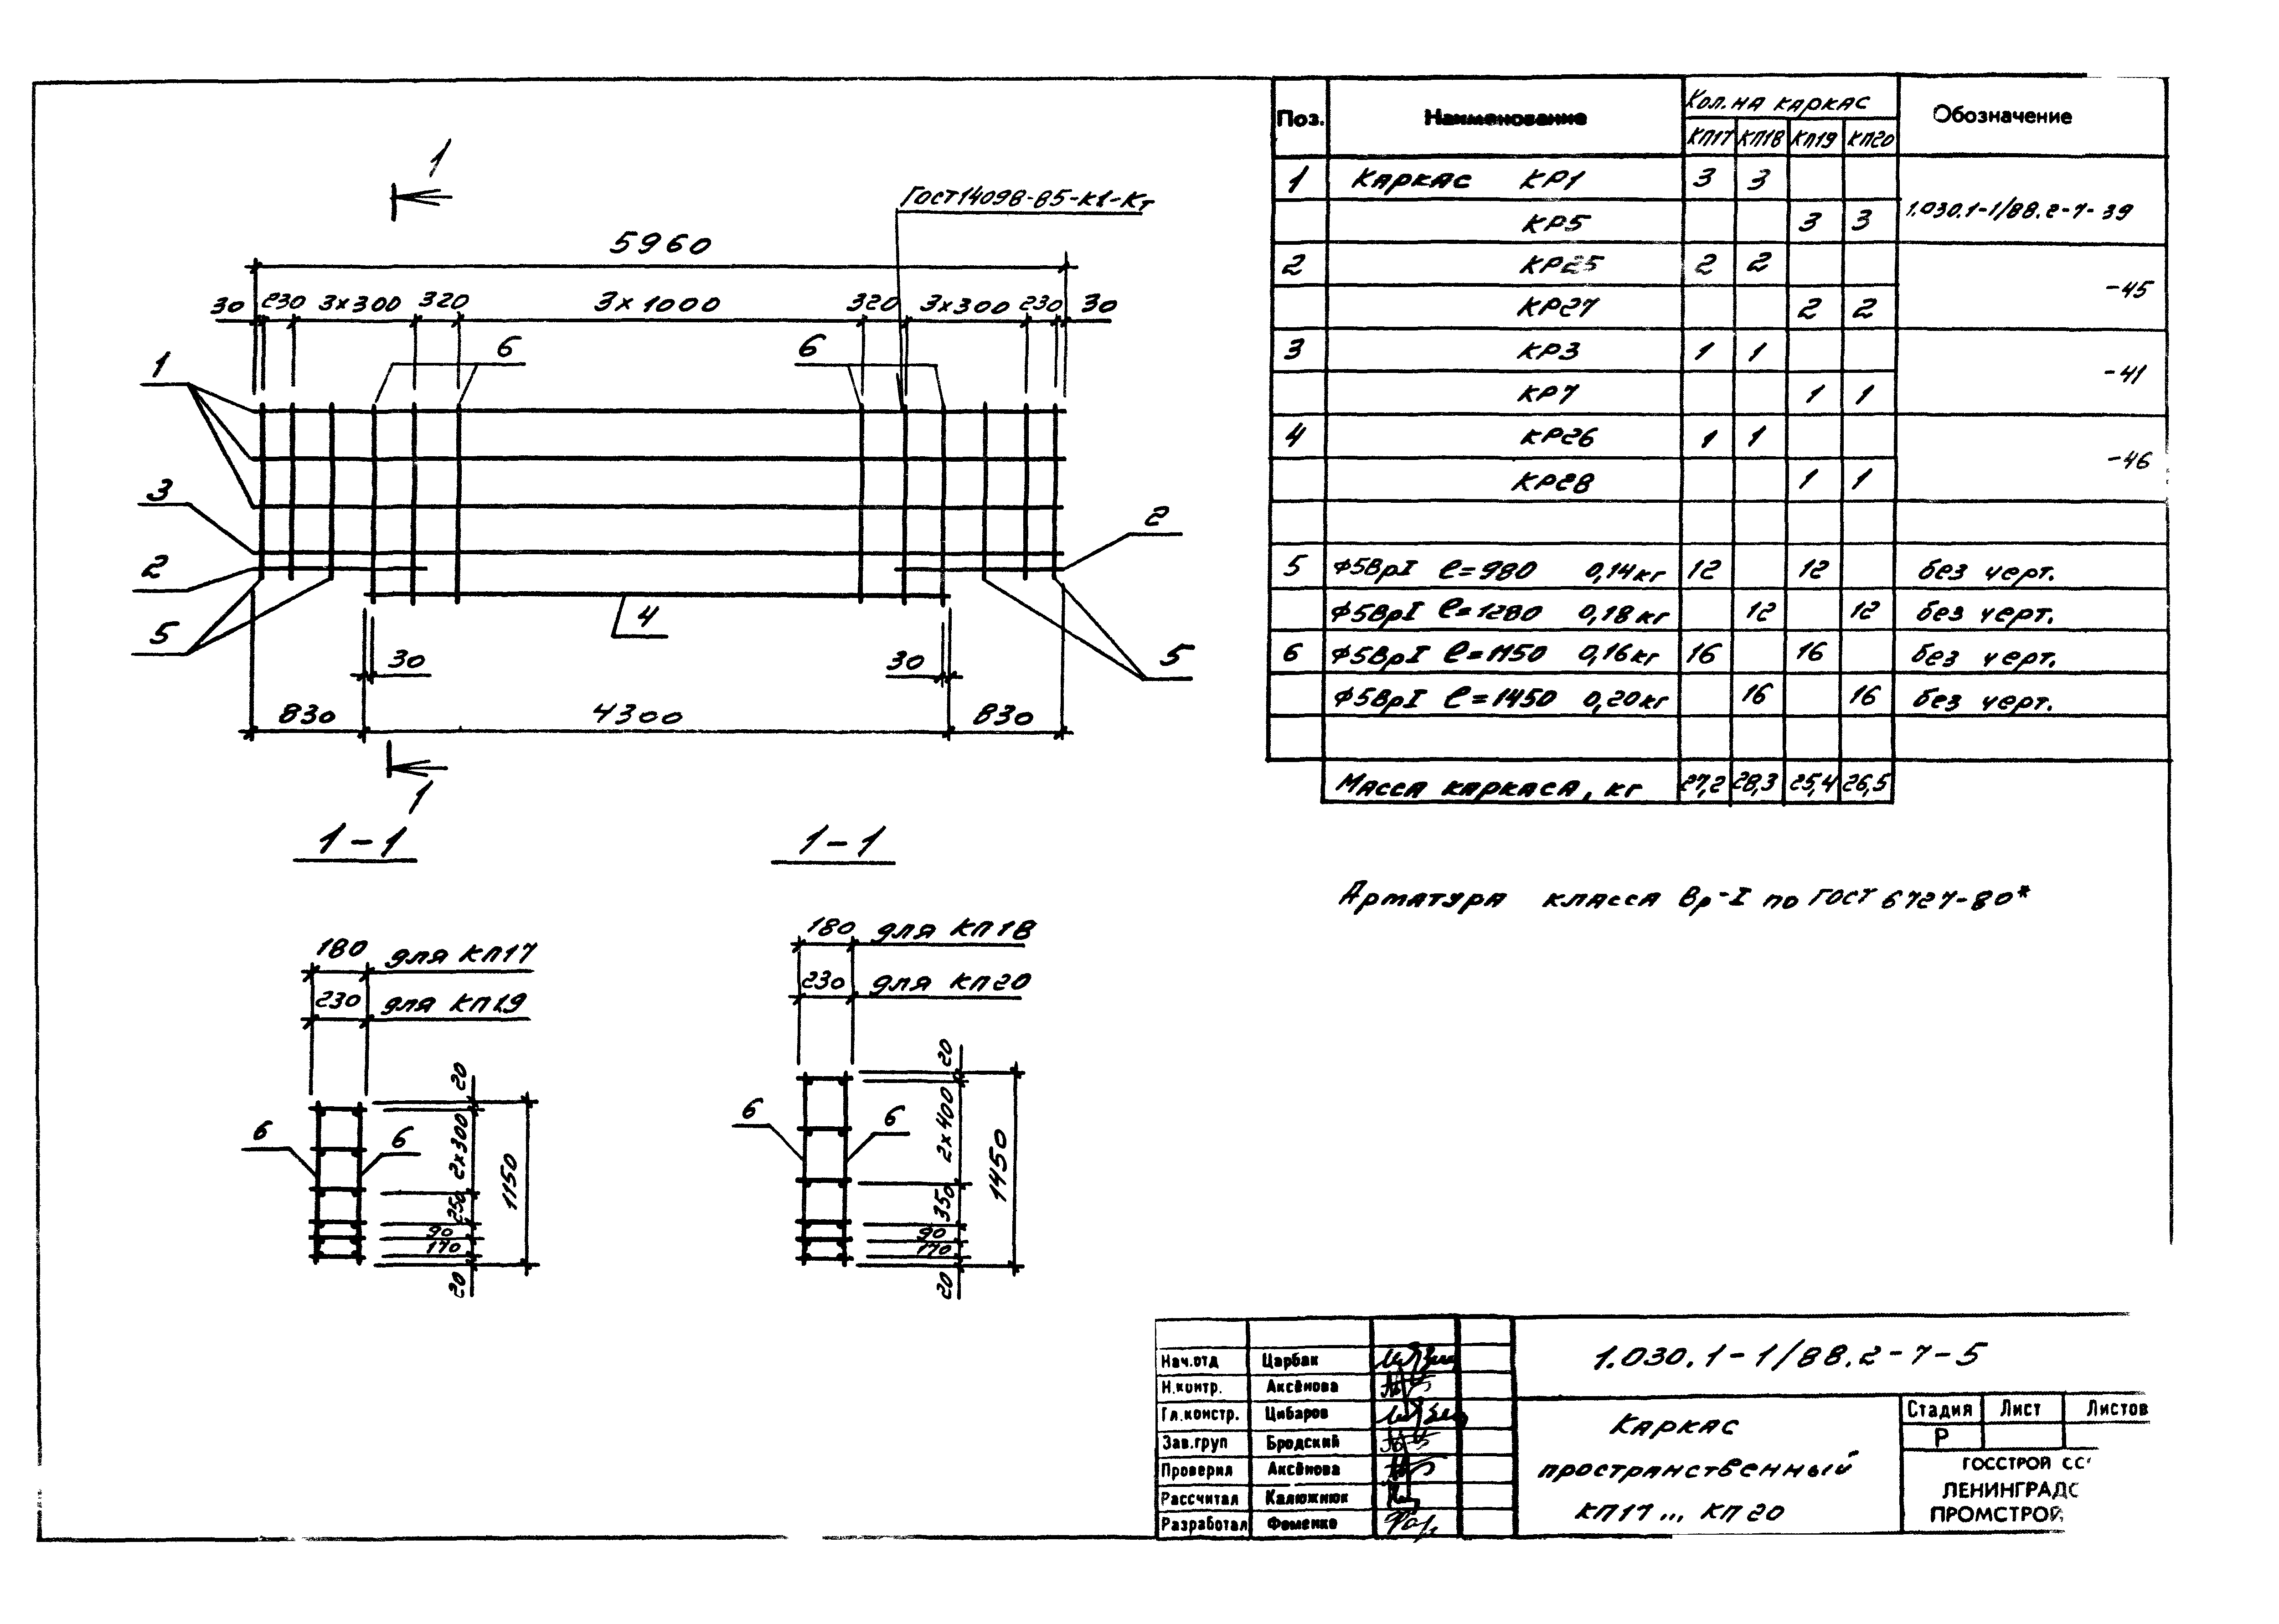 1
Гост14098-85-К1-Кт
5960
30 230 3×300 320 3×1000 320 3×300 230 30
6 6
1
3
2
2
5
4
5
30 30
830 4300 830
1
1-1 1-1
180 для КП17
230 для КП19
20
2×300
250
90
170
20
1150
6 6
180 для КП18
230 для КП20
20
2×400
350
90
170
20
1450
6 6
Поз. Наименование Кол. на каркас Обозначение
КП17 КП18 КП19 КП20
1 Каркас КР1 3 3
1.030.1-1/88.2-7-39
КР5 3 3
2 КР25 2 2
-45
КР27 2 2
3 КР3 1 1
-41
КР7 1 1
4 КР26 1 1
-46
КР28 1 1
5 ф5ВрI ℓ=980 0,14кг 12 12 без черт.
ф5ВрI ℓ=1280 0,18кг 12 12 без черт.
6 ф5ВрI ℓ=1150 0,16кг 16 16 без черт.
ф5ВрI ℓ=1450 0,20кг 16 16 без черт.
Масса каркаса, кг 27,2 28,3 25,4 26,5
Арматура класса Вр-I по ГОСТ 6727-80*
Нач.отд Царбак
Н.контр. Аксёнова
Гл.констр. Цибаров
Зав.груп Бродский
Проверил Аксёнова
Рассчитал Калюжнюк
Разработал Фоменко
1.030.1-1/88.2-7-5
Каркас
пространственный
КП17... КП20
Стадия Лист Листов
Р
ГОССТРОЙ СС
ЛЕНИНГРАДС
ПРОМСТРОЙ